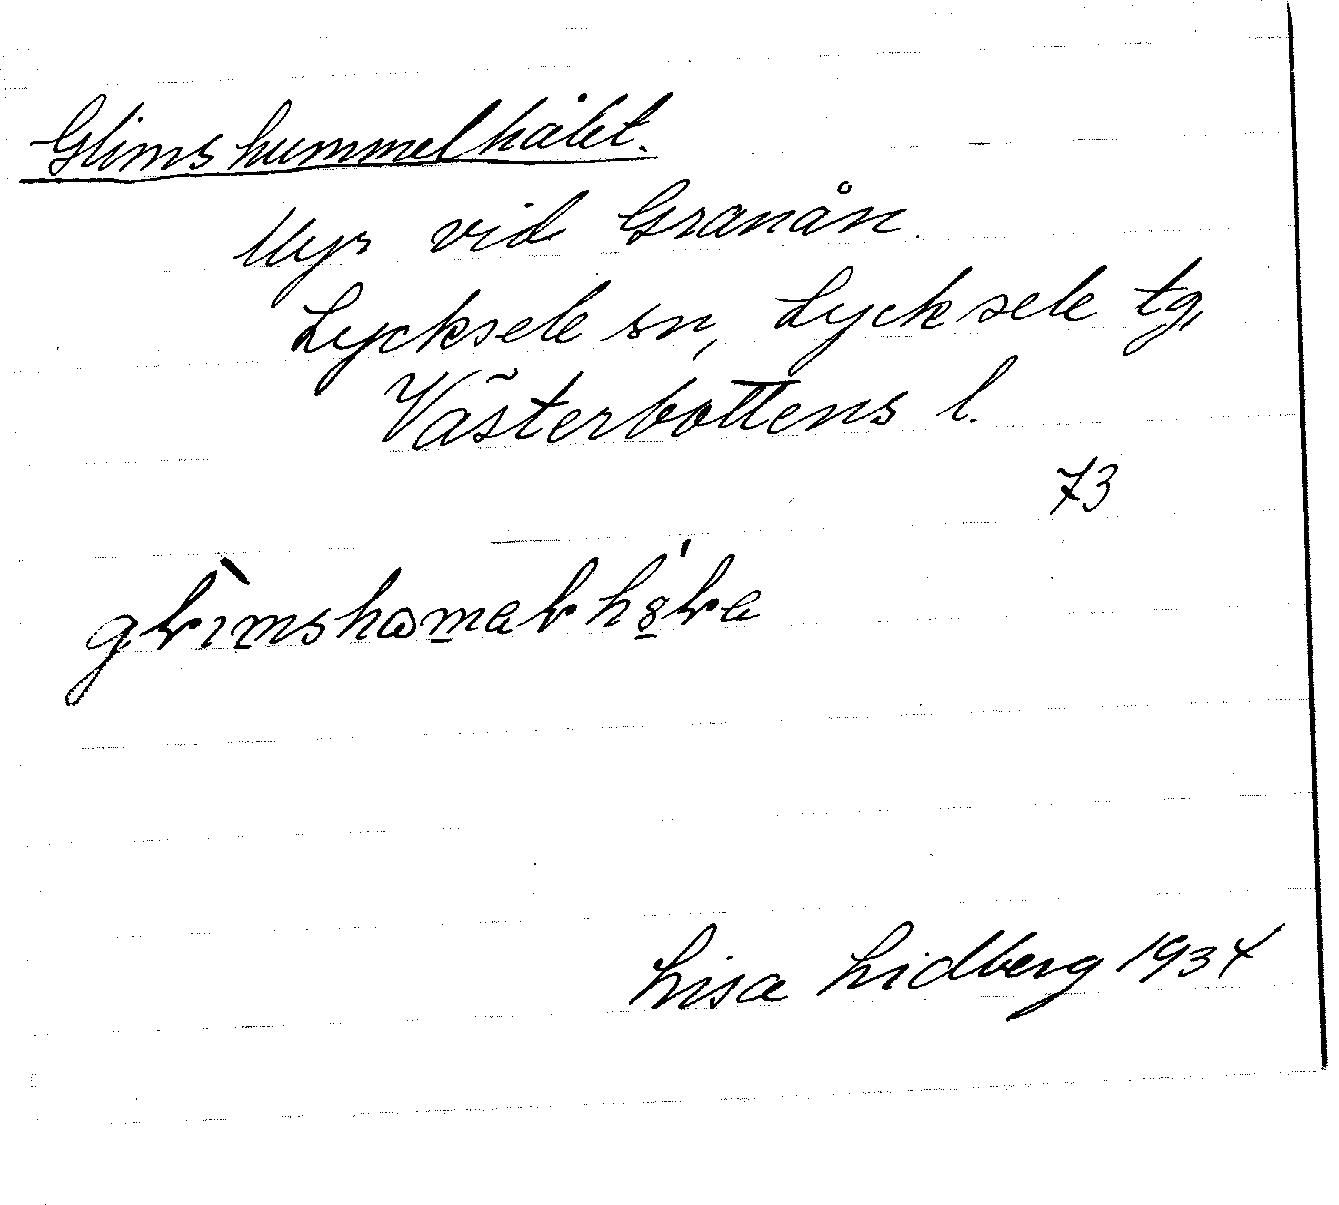 Glimshummelhålet.
Myr vid Granån.
Lycksele sn, Lycksele tg,
Västerbottens l.
73
Lisa Lidberg 1934